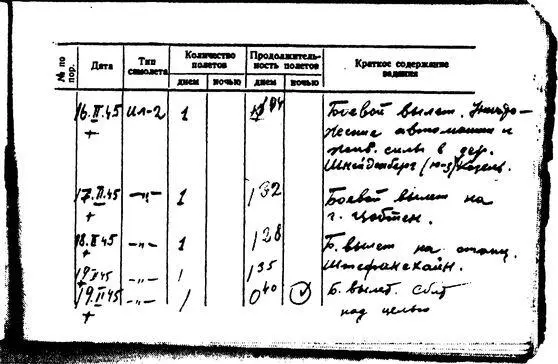 № по пор. Дата Тип самолета Количество полетов Продолжительность полетов Краткое содержание задания
днем ночью днем ночью
16.II.45 Ил-2 1 1 04 Боевой вылет. Уничто-
жение автомашин и
жив. силы в дер.
+
17.II.45 -"- 1 1 32 Боевой вылет на
+ г. Цобтен.
18.II.45 -"- 1 1 28 Б. вылет на станц.
+ Штефансхайн.
19.II.45 -"- 1 1 35
19.II.45 -"- 1 0 40 Б. вылет. Сбит
+ над целью